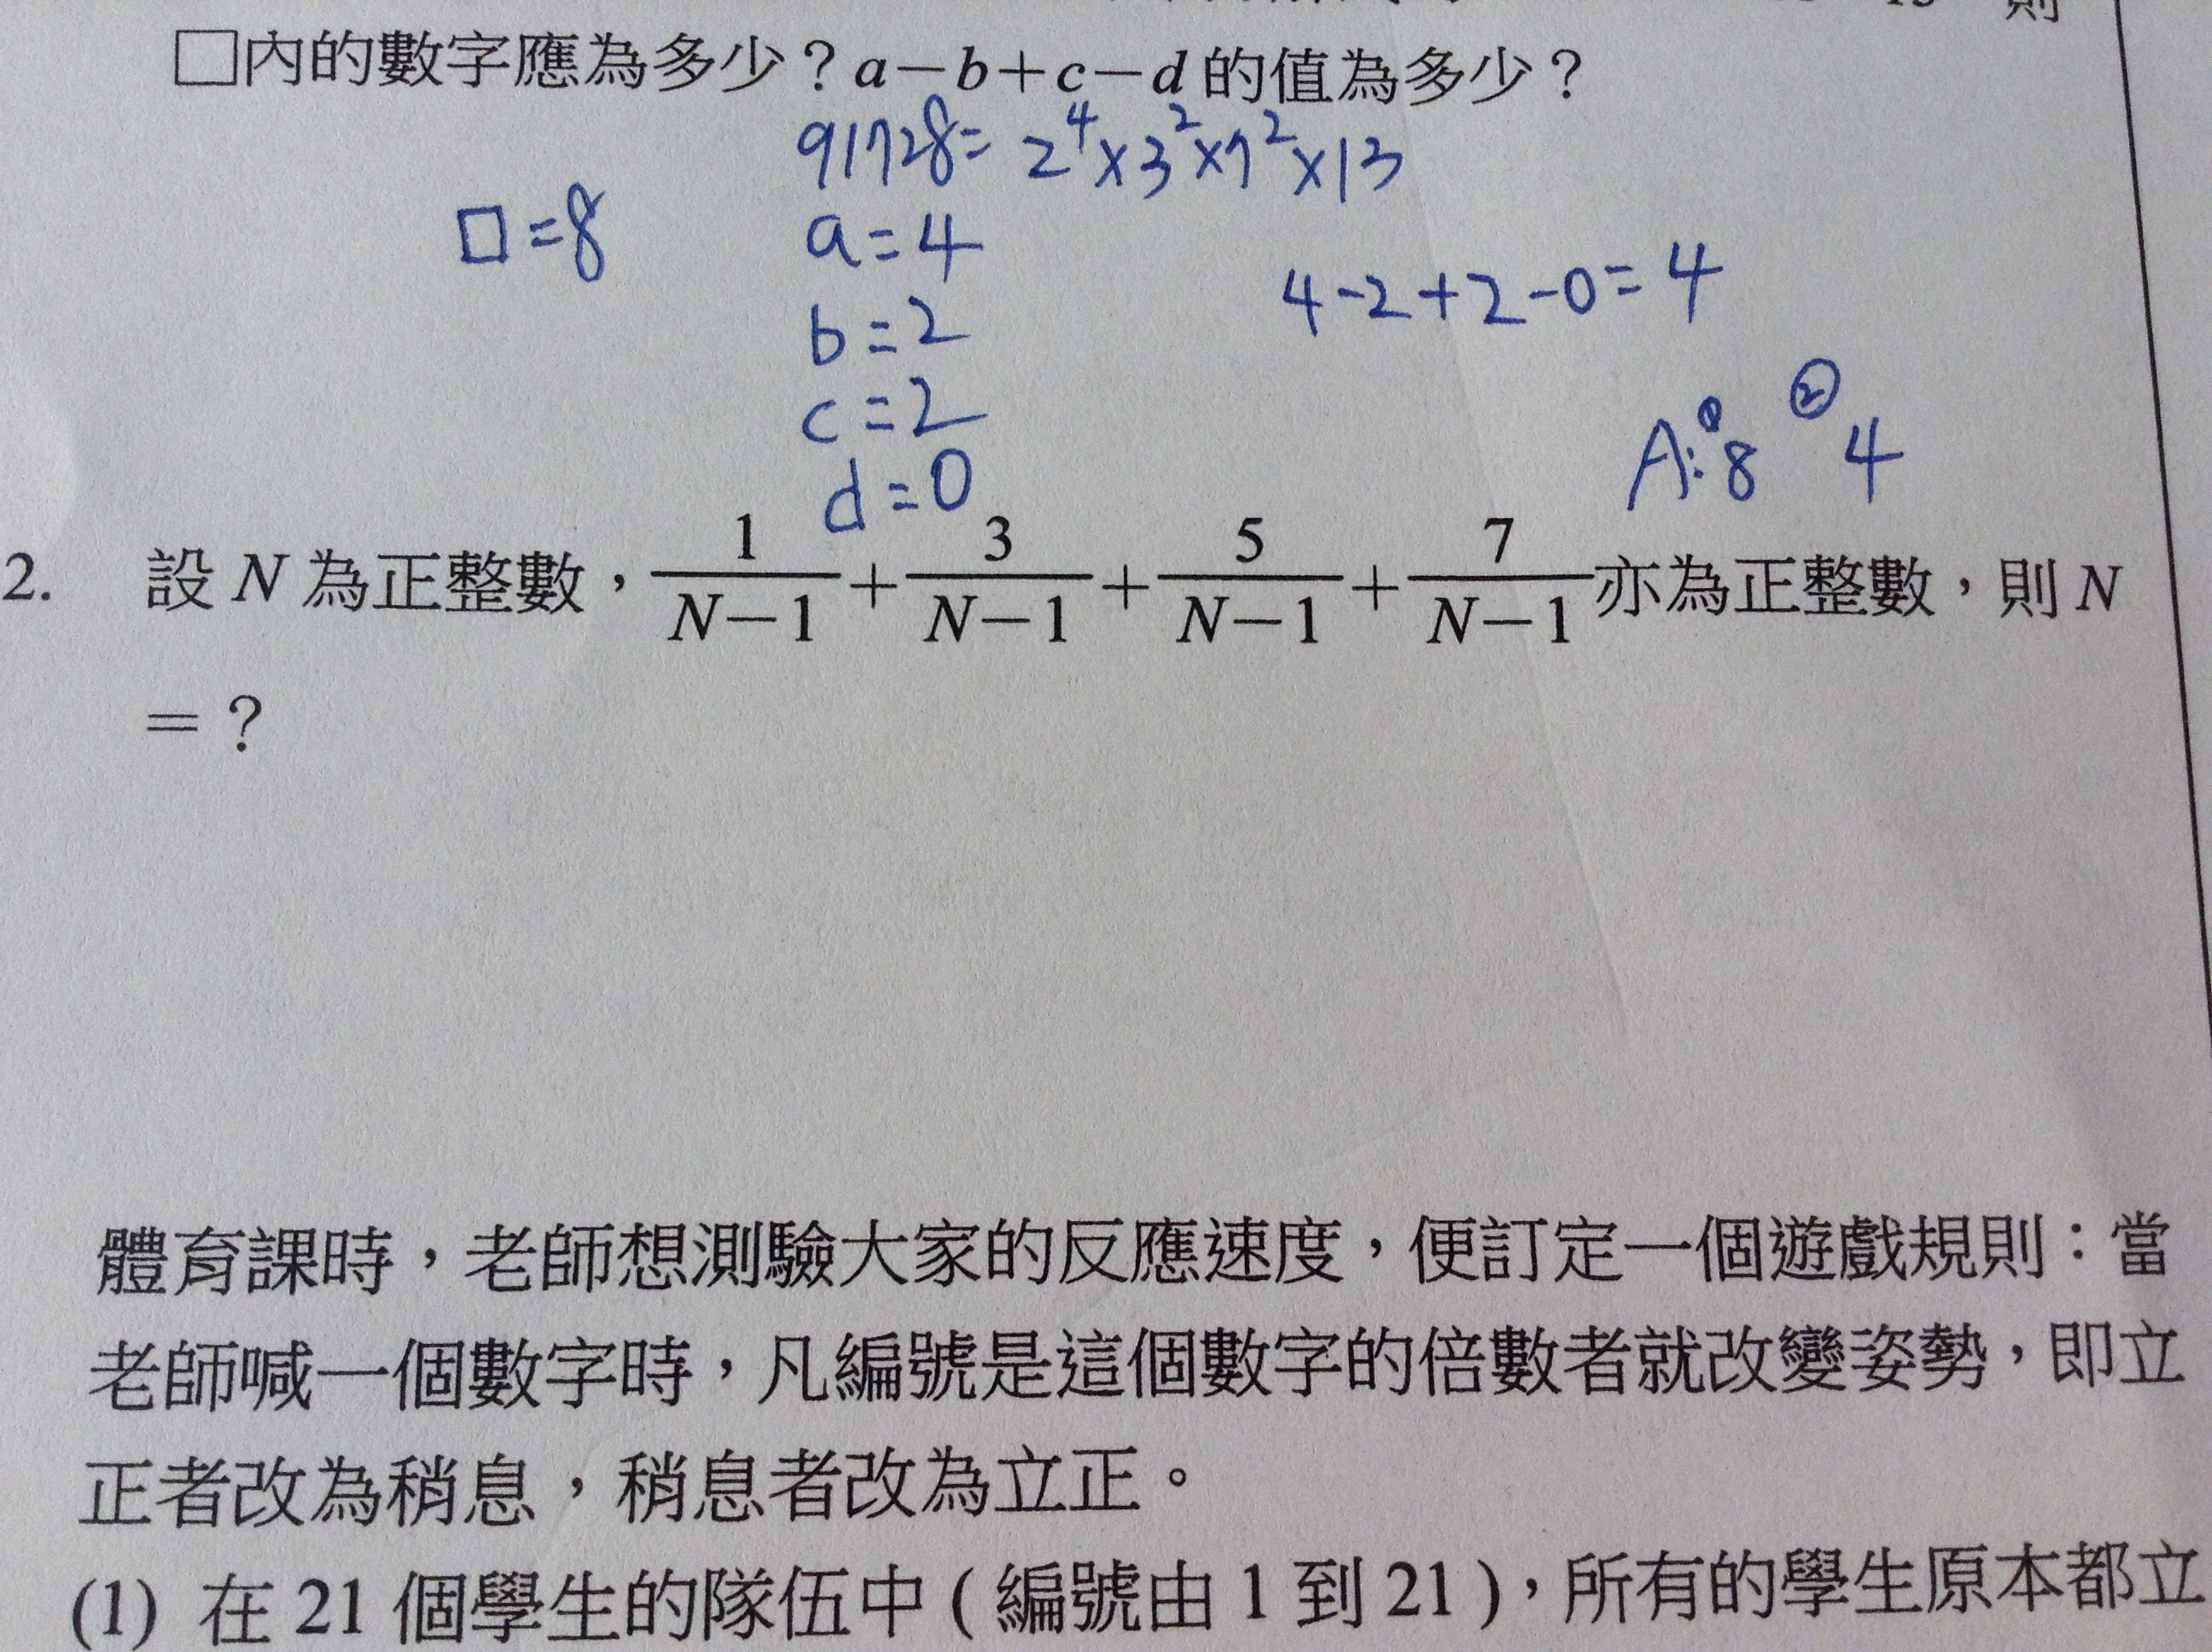 則
□內的數字應為多少？a－b＋c－d 的值為多少？
91728= 2^4×3^2×7^2×13
□=8
a=4
b=2
c=2
d=0
4-2+2-0=4
A:①8 ②4
2. 設 N 為正整數，1/(N－1)＋3/(N－1)＋5/(N－1)＋7/(N－1)亦為正整數，則 N
＝？
體育課時，老師想測驗大家的反應速度，便訂定一個遊戲規則：當
老師喊一個數字時，凡編號是這個數字的倍數者就改變姿勢，即立
正者改為稍息，稍息者改為立正。
(1) 在 21 個學生的隊伍中 ( 編號由 1 到 21 )，所有的學生原本都立